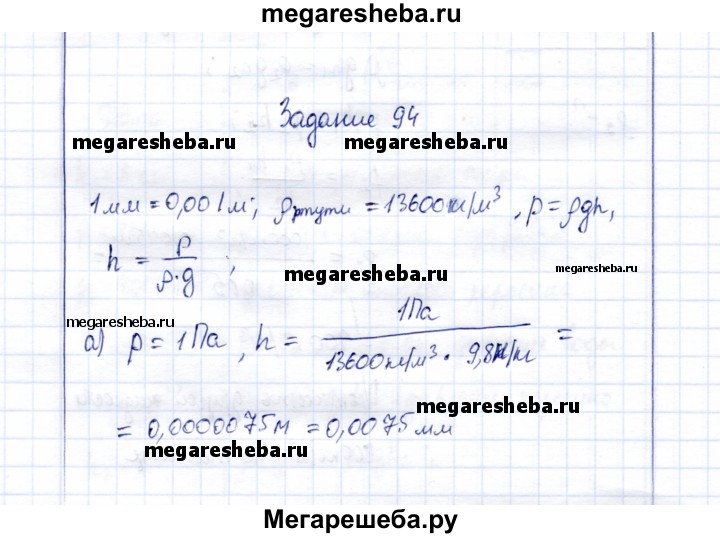 megaresheba.ru
Задание 94
megaresheba.ru megaresheba.ru
1 мм = 0,001 м; ρртути = 13600 кг/м³, p = ρgh,
h = p/ρ·g ;
megaresheba.ru megaresheba.ru
megaresheba.ru
а) p = 1 Па, h = 1 Па/13600 кг/м³ · 9,8 Н/кг =
megaresheba.ru
= 0,0000075 м = 0,0075 мм
megaresheba.ru
Мегарешеба.ру